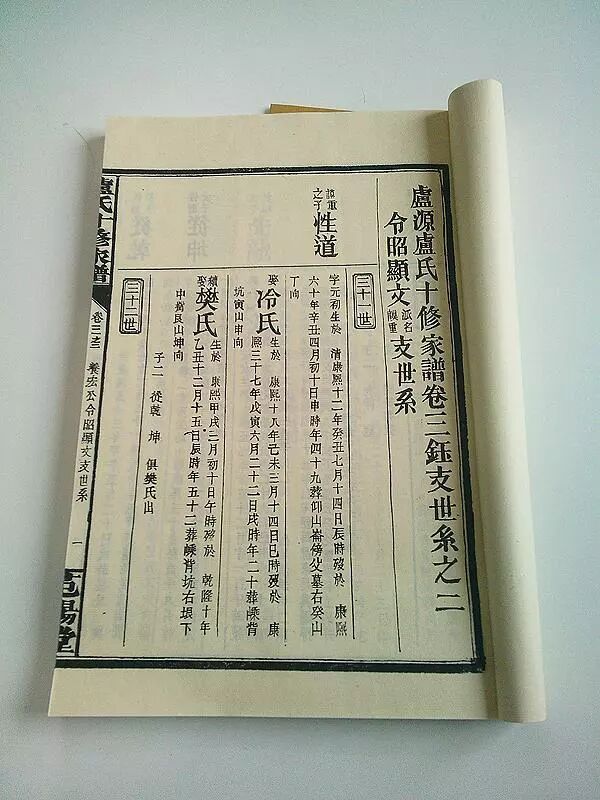 盧源盧氏十修家譜卷三鈺支世系之二
令昭顯文派名謨重支世系
三十一世
謨重之子性道
字元初生於 清康熙十二年癸丑七月十四日辰時歿於 康熙
六十年辛丑四月初十日申時年四十九葬仰山崙傍父墓右癸山
丁向
娶冷氏生於 康熙十八年己未三月十四日巳時歿於 康
熙三十七年戊寅六月二十二日戌時年二十葬嵊背
坑寅山申向
續娶樊氏生於 康熙甲戌三月初十日午時歿於 乾隆十年
乙丑十二月十五日辰時年五十二葬嵊背坑右垠下
中
艮山坤向
子二 從乾 坤 俱樊氏出
三十二世
盧氏十修家譜
卷三
養宏公令昭顯文支世系
一